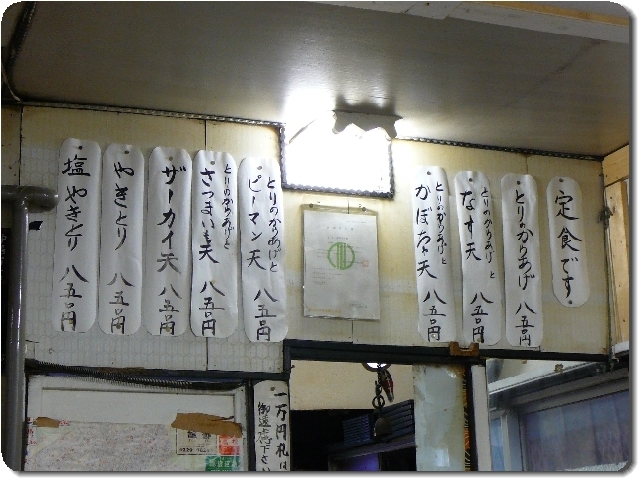 定食です。
とりのからあげ 八五〇円
とりのからあげと
なす天 八五〇円
とりのからあげと
かぼちゃ天 八五〇円
とりのからあげと
ピーマン天 八五〇円
とりのからあげと
さつまいも天 八五〇円
ザーカイ天 八五〇円
やきとり 八五〇円
塩やきとり 八五〇円
一万円札は
御遠慮下さい